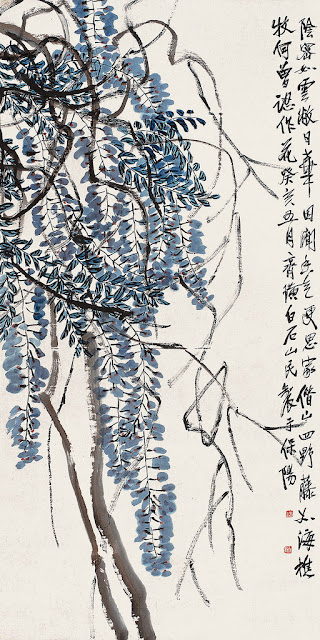 陰密如雲蔽日華田園香色更思家借山四野藤如海樵
牧何曾認作花癸亥五月齊璜白石山民製于保陽